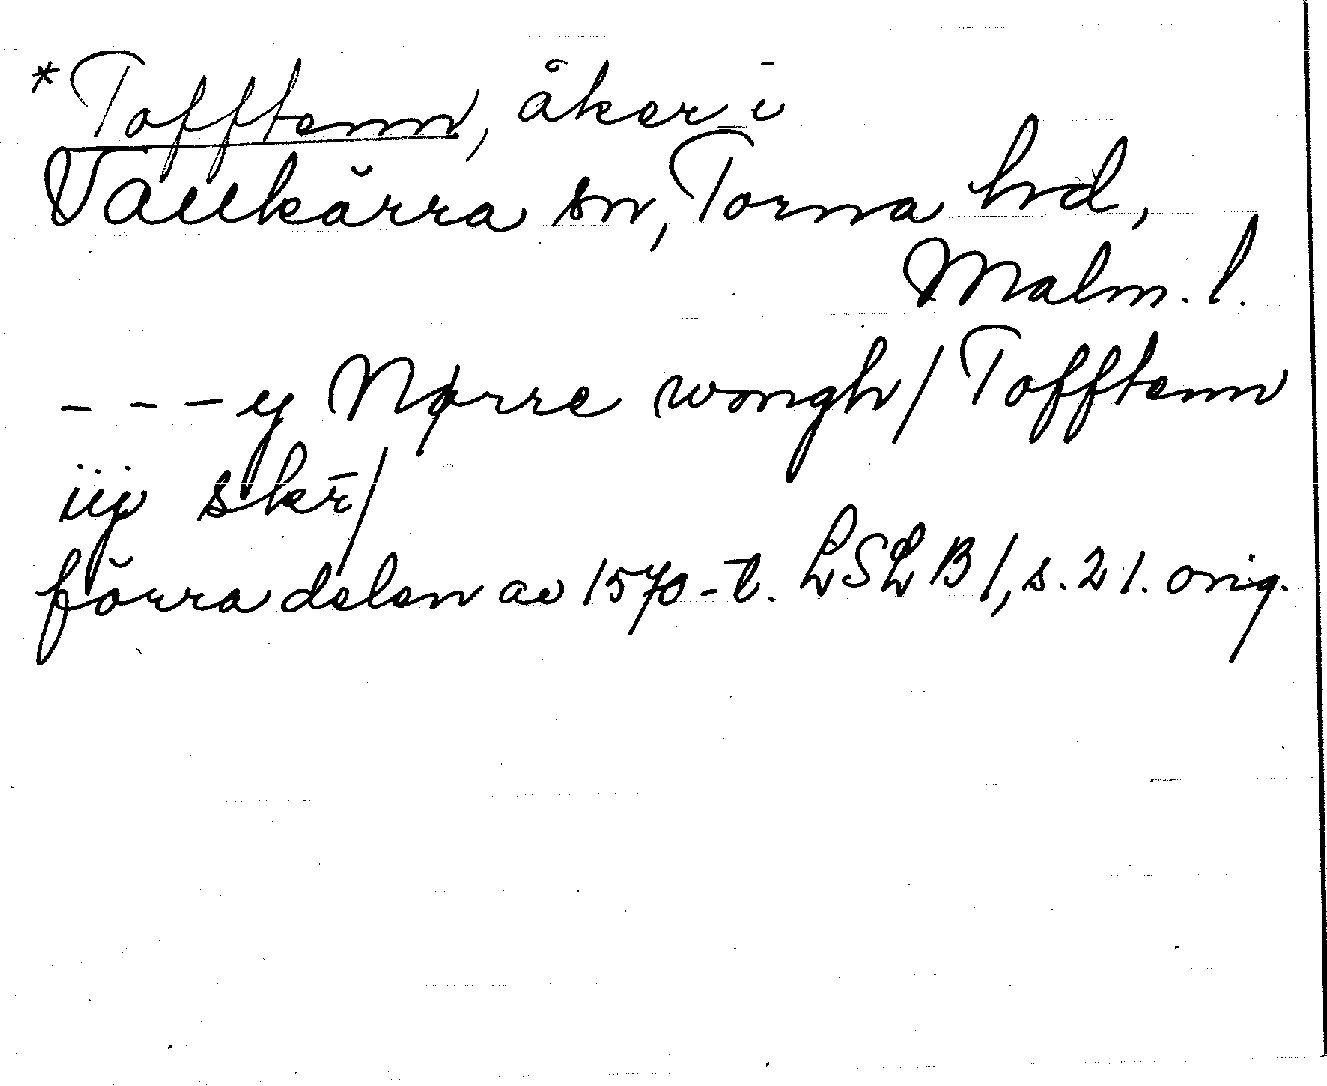 *Tofftenn, åker i
Vallkärra sn, Torna hd,
Malm. l.
- - - y Nørre wongh / Tofftenn
iij skr̄ /
förra delen av 1570-t. LSLB 1, s. 21. orig.